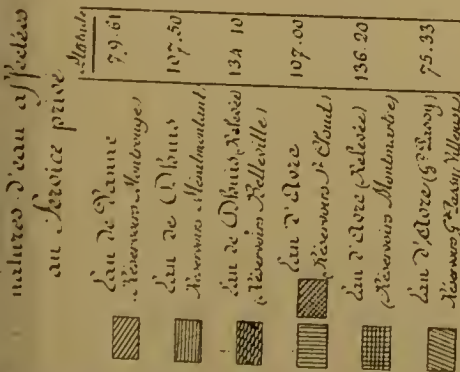 natures d'eau affectées
au Service privé
Altitude
Eau de Vanne
(Réservoirs Montrouge) 79.61
Eau de Dhuis
Réservoirs Ménilmontant 107.50
Eau de Dhuis (Relevée)
(Réservoirs Belleville) 134 10
Eau d'Avre
(Réservoirs St Cloud) 107.00
Eau d'Avre (Relevée)
(Réservoirs Montmartre) 136.20
Eau d'Avre (Gd Passy)
Réservoirs Gd Passy Villejust 75.33